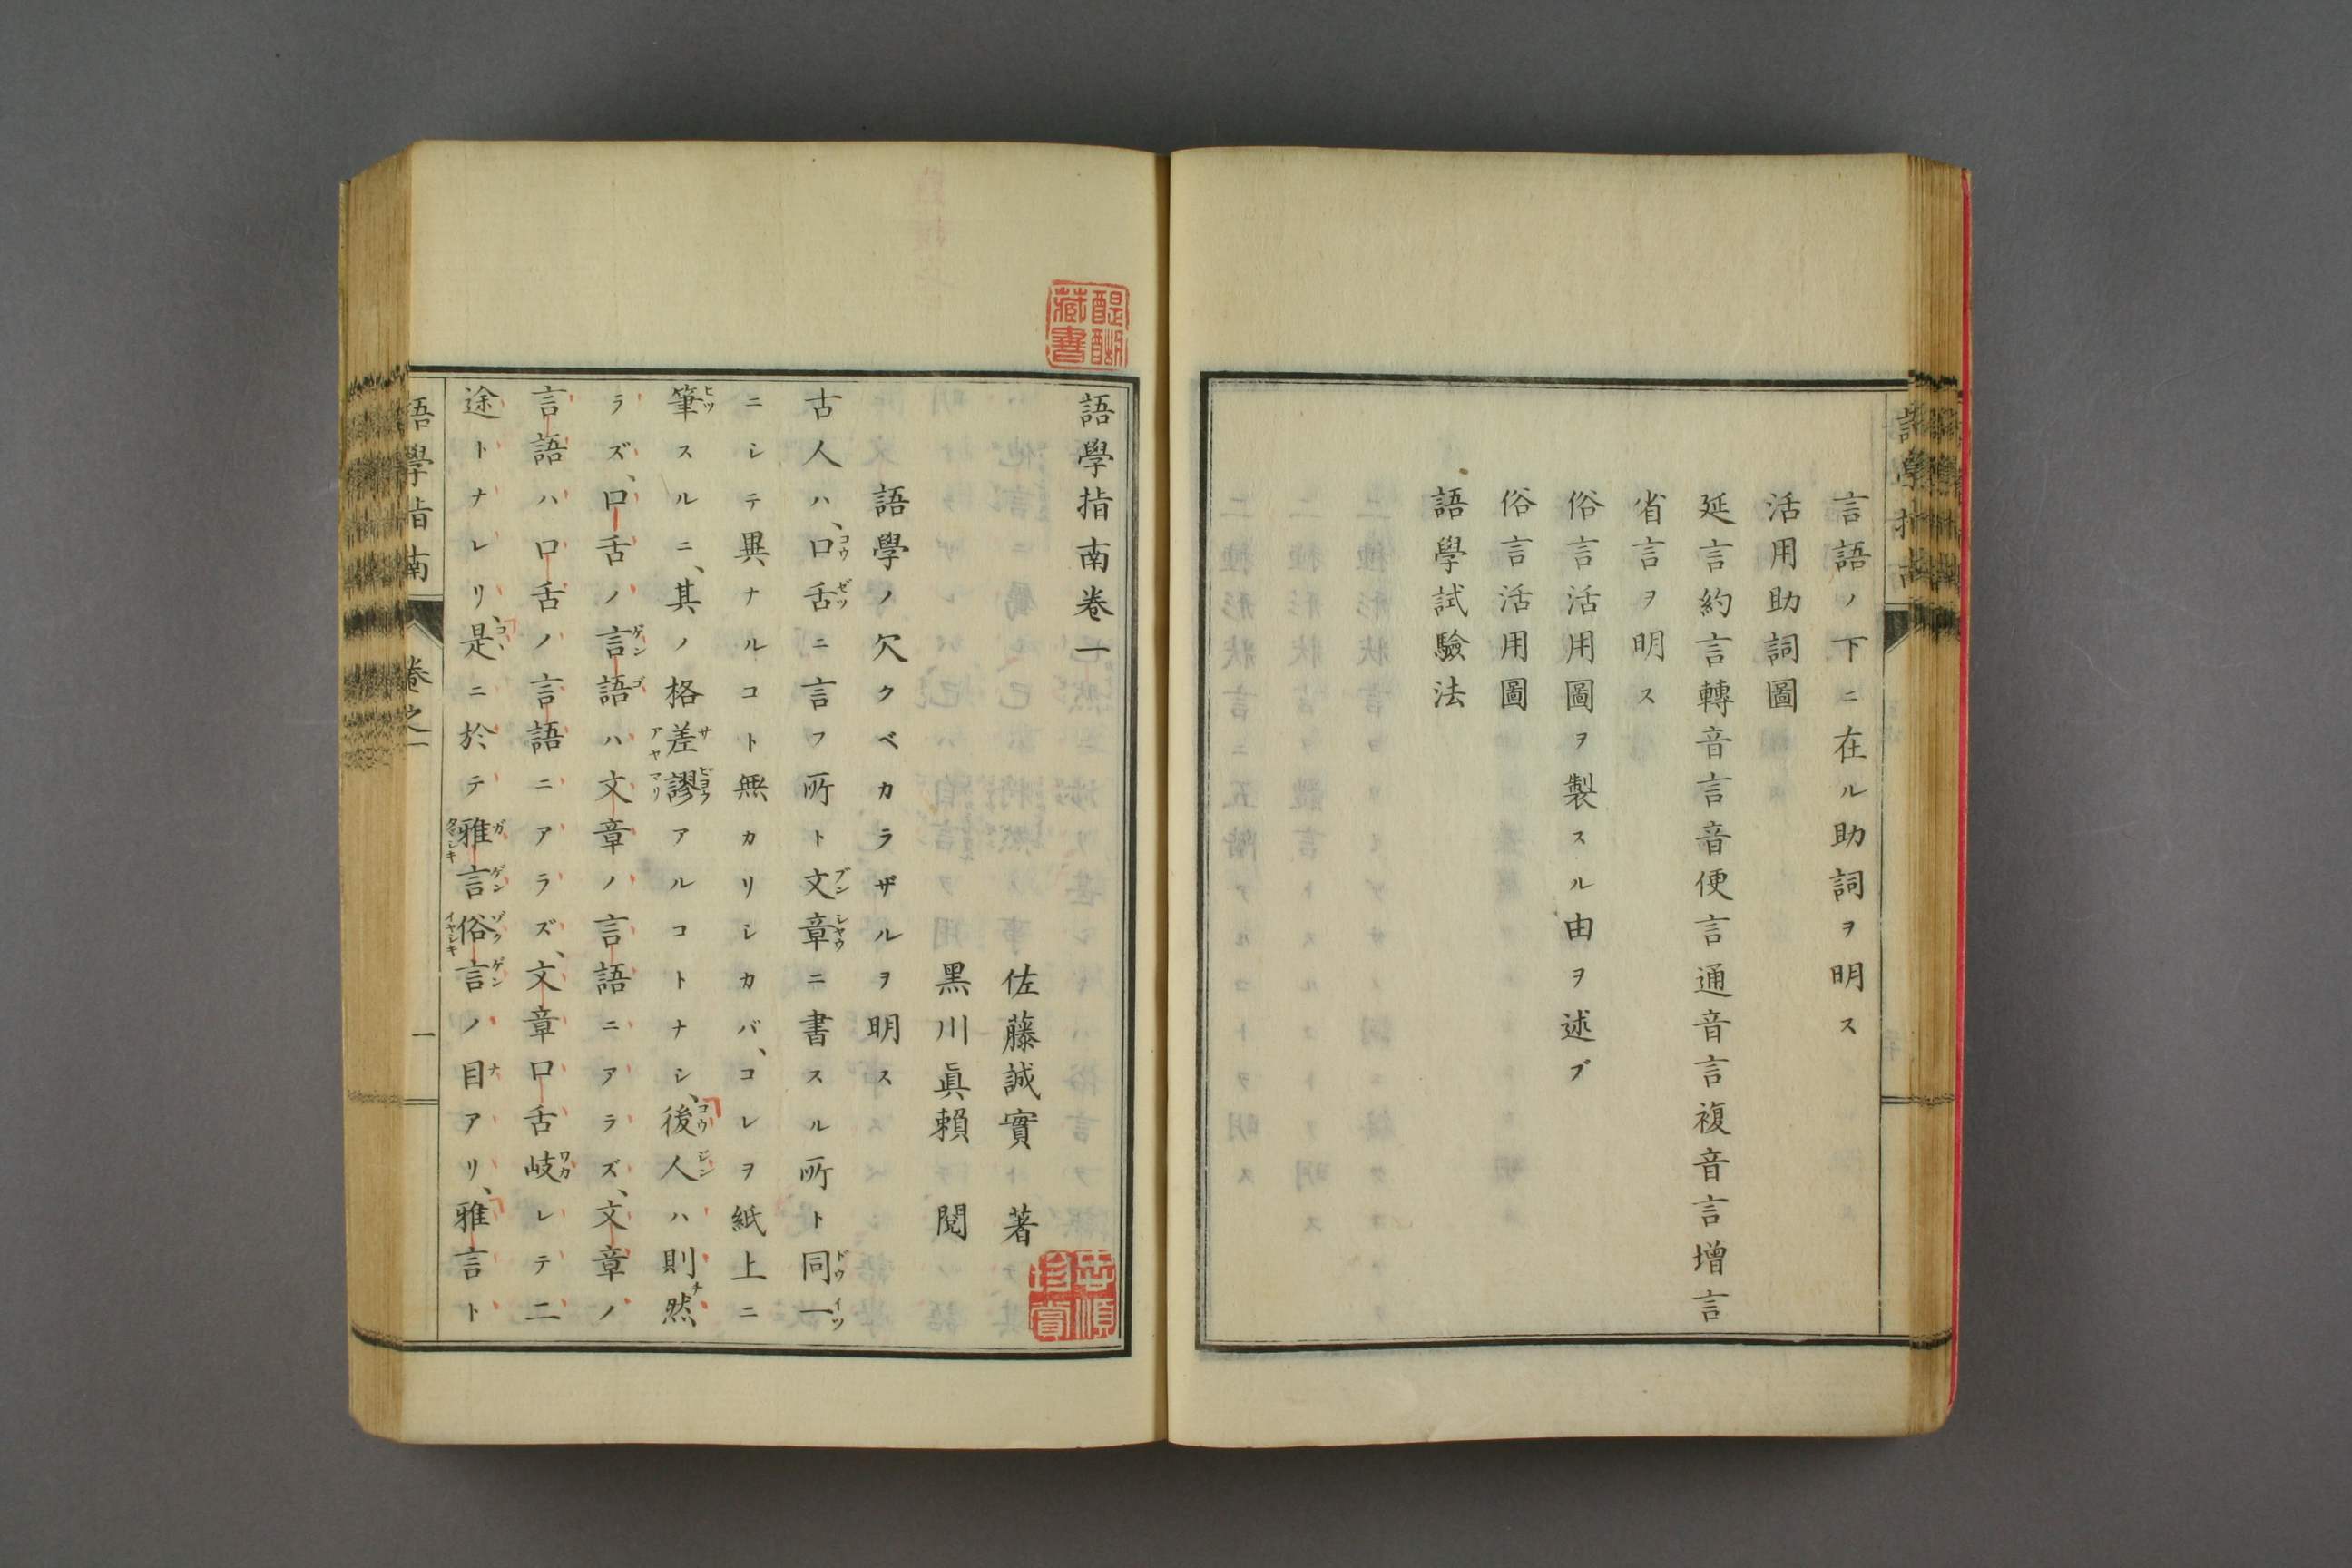 言語ノ下ニ在ル助詞ヲ明ス
活用助詞圖
延言約言轉音言音便言通音言複音言增言
省言ヲ明ス
俗言活用圖ヲ製スル由ヲ述ブ
俗言活用圖
語學試驗法
醍醐藏書
語學指南卷一
佐藤誠實　著
黑川眞賴　閱
語學ノ欠クベカラザルヲ明ス
古人ハ、口舌ニ言フ所ト文章ニ書スル所ト同一
ニシテ異ナルコト無カリシカバ、コレヲ紙上ニ
筆スルニ、其ノ格差謬アルコトナシ、後人ハ則然
ラズ、口舌ノ言語ハ文章ノ言語ニアラズ、文章ノ
言語ハ口舌ノ言語ニアラズ、文章口舌岐レテ二
途トナレリ、是ニ於テ雅言俗言ノ目アリ、雅言ト
語學指南　卷之一　一